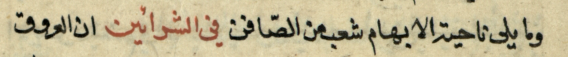 وما يلى ناحية الابهام شعب من الصّافن في الشرائين ان العروق